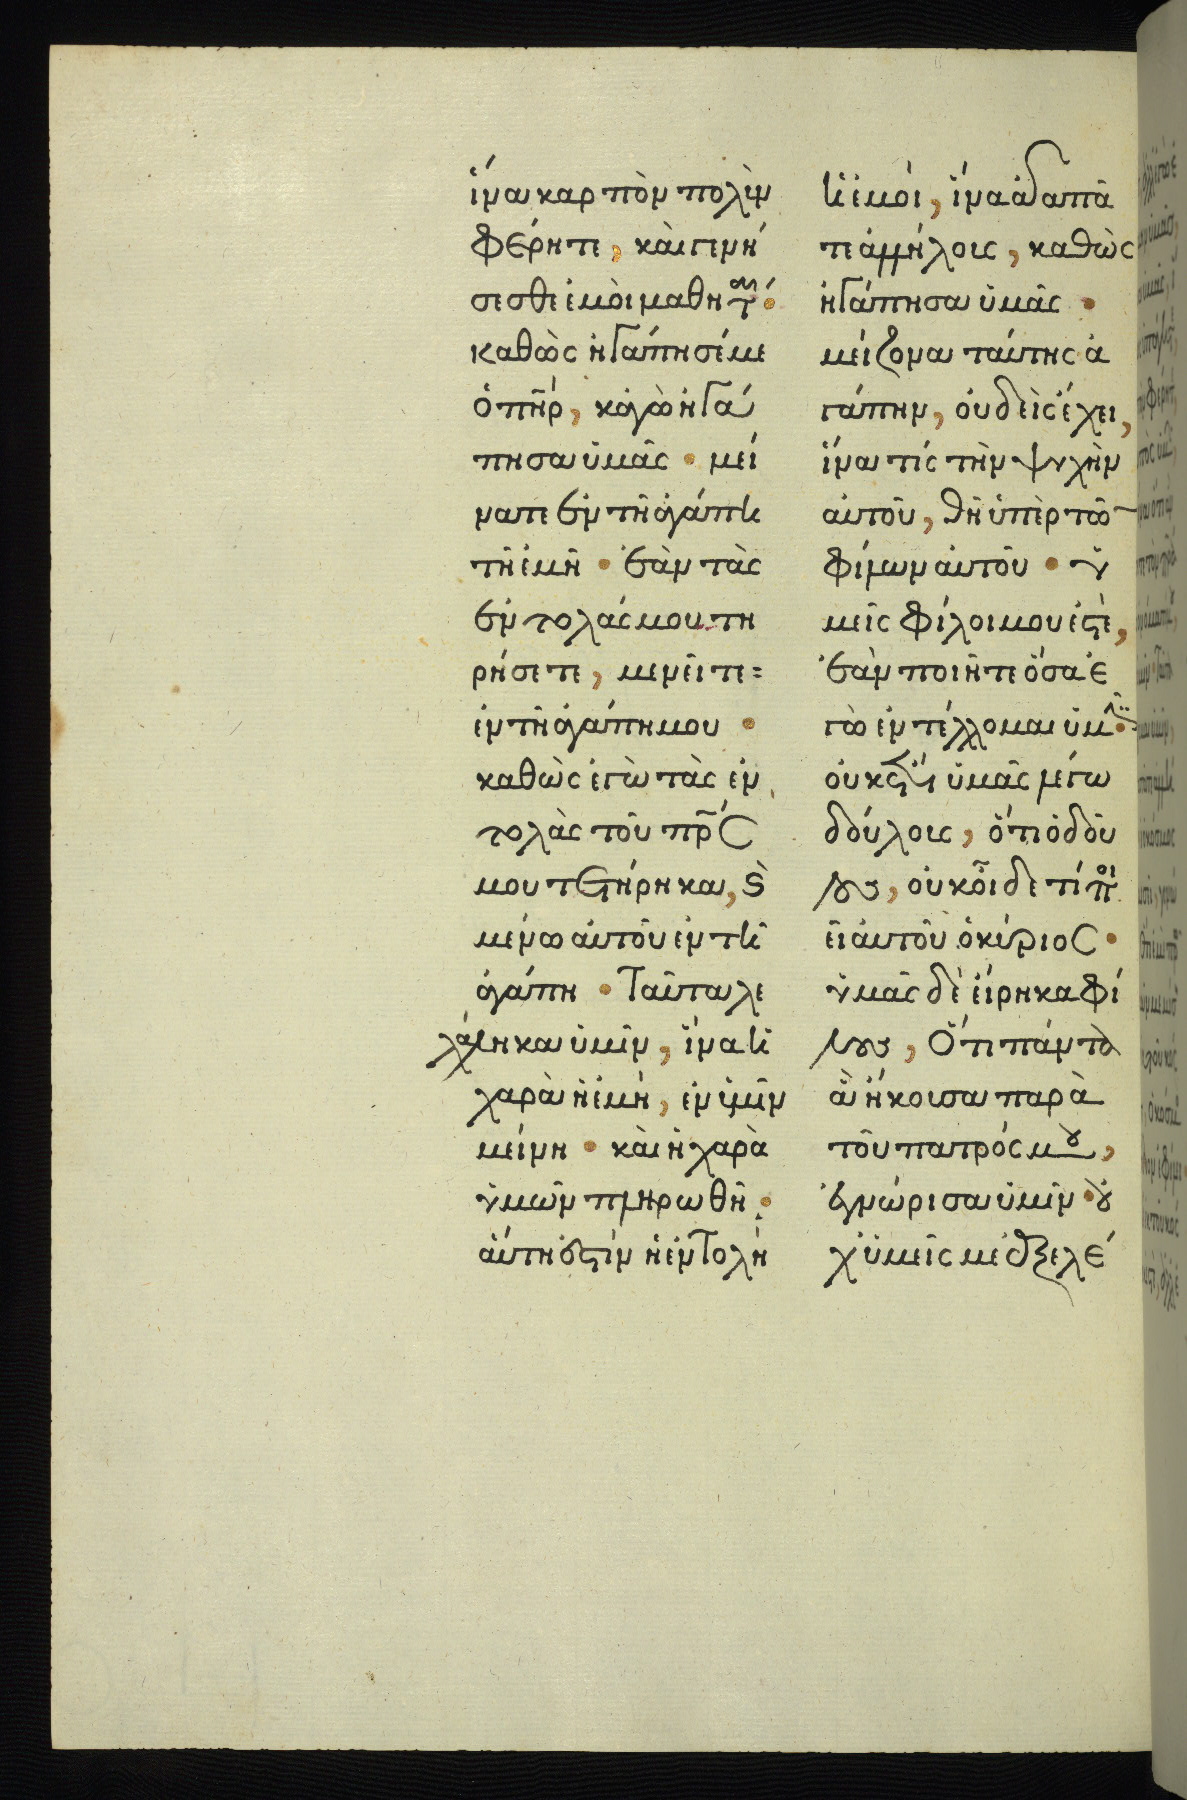 ἵνα καρπὸν πολὺν
φέρητε, καὶ γενή
σεσθε ἐμοὶ μαθητ(αί)·
καθὼς ἠγάπησέ με
ὁ πηρ, κἀγὼ ἠγά
πησα ὑμᾶς· μεί
νατε ἐν τῇ ἀγάπη
τῇ ἐμῇ· ἐὰν τὰς
ἐντολάς μου τη
ρήσετε, μενεῖτε
ἐν τῇ ἀγάπη μου·
καθὼς ἐγὼ τὰς ἐν
τολὰς τοῦ πρς
μου τετήρηκα, καὶ
μένω αὐτοῦ ἐν τῇ
ἀγάπη· Ταῦτα λε
λάληκα ὑμῖν, ἵνα ἡ
χαρὰ ἡ ἐμὴ, ἐν ὑμῖν
μείνη· καὶ ἡ χαρὰ
ὑμῶν πληρωθῆ·
αὕτη ἐστὶν ἡ ἐντολὴ
ἡ ἐμὸι, ἵνα ἀγαπᾶ
τε ἀλλήλοις, καθὼς
ἠγάπησα ὑμᾶς·
μείζονα ταύτης ἀ
γάπην, οὐδεὶς ἔχει,
ἵνα τίς τὴν ψυχὴν
αὐτοῦ, θῆ ὑπὲρ τῶν
φίλων αὐτοῦ· ὑ
μεῖς φίλοι μου ἐστὲ,
ἐὰν ποιῆτε ὅσα ἐ
γὼ ἐντέλλομαι ὑμῖν·
οὐκ ἔτι ὑμᾶς λέγω
δούλοις, ὅτι ὁ δοῦ
λος, οὐκ οἶδε τί ποι
εῖ αὐτοῦ ὁ κύριος·
ὑμᾶς δὲ εἴρηκα φί
λους, Ὅτι πάντα
ἃ ἤκουσα παρὰ
τοῦ πατρός μου,
ἐγνώρισα ὑμῖν· οὐ
χ ὑμεῖς με ἐξελέ